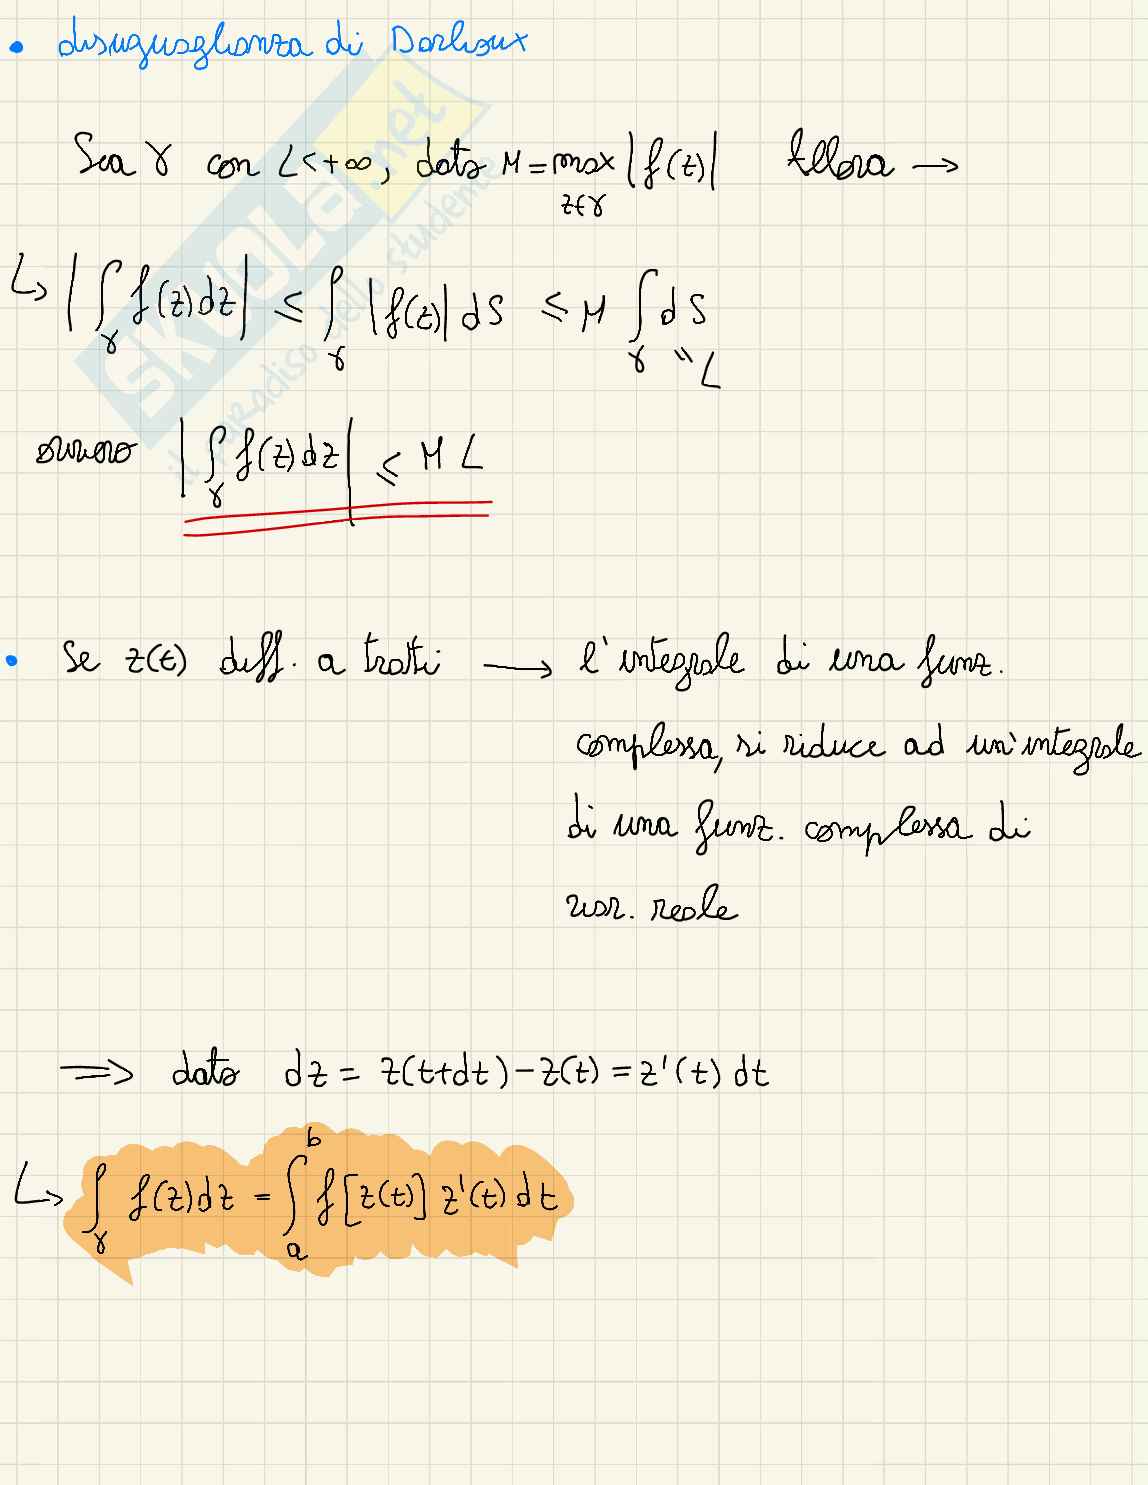 • disuguaglianza di Darboux
Sia γ con L<+∞, dato M = max |f(t)| Allora →
z∈γ
↳ |∫_γ f(z)dz| ≤ ∫_γ |f(z)| dS ≤ M ∫_γ dS
" L
ovvero |∫_γ f(z)dz| ≤ M L
• Se z(t) diff. a tratti → l'integrale di una funz.
complessa, si riduce ad un'integrale
di una funz. complessa di
var. reale
⇒ dato dz = z(t+dt) - z(t) = z'(t) dt
↳ ∫_γ f(z)dz = ∫_a^b f[z(t)] z'(t) dt
SKUOLA.net
il paradiso dello studente